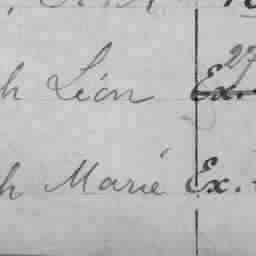 h Léon Ex. 27
h Marie Ex.